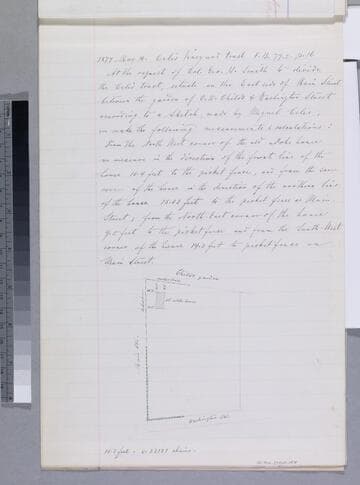 1877. Aug 14. Celis' Vineyard tract. F.B. 77-2. p.
At the request of Col. Geo. H. Smith to divide
the Celis' tract, situate on the East side of Main Street
between the garden of O.W. Childs & Washington Street
according to a Sketch, made by Miguel Celis,
we make the following measurements & calculations:
From the North West corner of the old adobe house
we measure in the direction of the front line of the
house 10.4 feet to the picket fence, and from the same
corner of the house in the direction of the northern line
of the house 18.83 feet to the picket fence on Main
Street; from the North East corner of the house
9.5 feet to the picket fence and from the South West
corner of the house 19.3 feet to picket fence on
Main Street.
Childs' garden
old adobe house
Main Str.
Washington Str.
feet = chains.